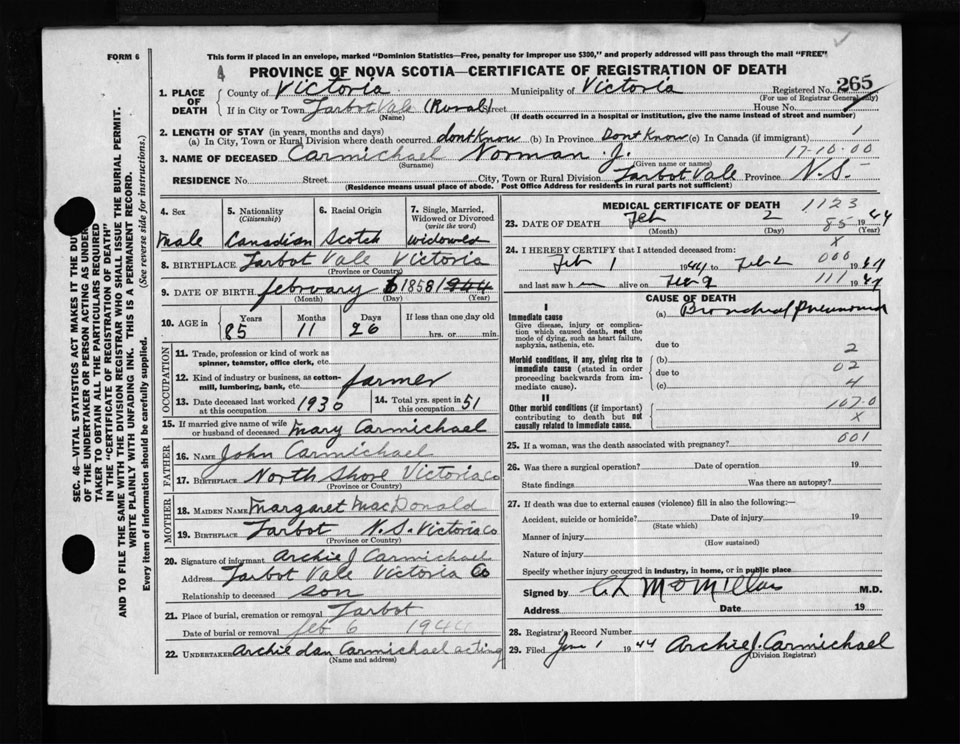 FORM 6
This form if placed in an envelope, marked "Dominion Statistics—Free, penalty for improper use $300," and properly addressed will pass through the mail "FREE"
PROVINCE OF NOVA SCOTIA—CERTIFICATE OF REGISTRATION OF DEATH
265
1. PLACE OF DEATH
County of Victoria Municipality of Victoria Registered No.
(For use of Registrar General only)
If in City or Town Tarbot Vale (Rural) Street House No.
(Name) (If death occurred in a hospital or institution, give the name instead of street and number)
2. LENGTH OF STAY (in years, months and days)
(a) In City, Town or Rural Division where death occurred dont Know (b) In Province Dont Know (c) In Canada (if immigrant) 1
3. NAME OF DECEASED Carmichael Norman J. 17-10-00
(Surname) (Given name or names)
RESIDENCE No. Street City, Town or Rural Division Tarbot Vale Province N.S.
(Residence means usual place of abode. Post Office Address for residents in rural parts not sufficient)
4. Sex
Male
5. Nationality (Citizenship)
Canadian
6. Racial Origin
Scotch
7. Single, Married, Widowed or Divorced (write the word)
widowed
8. BIRTHPLACE Tarbot Vale Victoria
(Province or Country)
9. DATE OF BIRTH february 6 1858
(Month) (Day) (Year)
10. AGE in Years Months Days If less than one day old
85 11 26 hrs. or min.
OCCUPATION
11. Trade, profession or kind of work as spinner, teamster, office clerk, etc.
12. Kind of industry or business, as cotton-mill, lumbering, bank, etc. farmer
13. Date deceased last worked at this occupation 1930
14. Total yrs. spent in this occupation 51
15. If married give name of wife or husband of deceased Mary Carmichael
FATHER
16. NAME John Carmichael
17. BIRTHPLACE North Shore Victoria Co
(Province or Country)
MOTHER
18. MAIDEN NAME Margaret MacDonald
19. BIRTHPLACE Tarbot N.S. Victoria Co
(Province or Country)
20. Signature of informant Archie J Carmichael
Address Tarbot Vale Victoria Co
Relationship to deceased son
21. Place of burial, cremation or removal Tarbot
Date of burial or removal feb 6 1944
22. UNDERTAKER Archie dan Carmichael acting
(Name and address)
MEDICAL CERTIFICATE OF DEATH
1123
23. DATE OF DEATH Feb 2 1944
85
(Month) (Day) (Year)
X
24. I HEREBY CERTIFY that I attended deceased from:
000
Feb 1 1944 to Feb 2 1944
111
and last saw h alive on 1944
CAUSE OF DEATH
I
Immediate cause
Give disease, injury or complication which caused death, not the mode of dying, such as heart failure, asphyxia, asthenia, etc.
(a) Bronchial Pneumonia
due to 2
Morbid conditions, if any, giving rise to immediate cause (stated in order proceeding backwards from immediate cause).
(b) 02
due to
(c) 4
II
Other morbid conditions (if important) contributing to death but not causally related to immediate cause.
107.0
X
25. If a woman, was the death associated with pregnancy? 001
26. Was there a surgical operation? Date of operation 19
State findings Was there an autopsy?
27. If death was due to external causes (violence) fill in also the following:—
Accident, suicide or homicide? Date of injury 19
(State which)
Manner of injury
(How sustained)
Nature of injury
Specify whether injury occurred in industry, in home, or in public place
Signed by C L McMillan M.D.
Address Date 19
28. Registrar's Record Number
29. Filed June 1 1944 Archie J. Carmichael
(Division Registrar)
SEC. 46—VITAL STATISTICS ACT MAKES IT THE DUTY
OF THE UNDERTAKER OR PERSON ACTING AS UNDER-
TAKER TO OBTAIN ALL THE PARTICULARS REQUIRED
IN THE "CERTIFICATE OF REGISTRATION OF DEATH"
AND TO FILE THE SAME WITH THE DIVISION REGISTRAR WHO SHALL ISSUE THE BURIAL PERMIT.
WRITE PLAINLY WITH UNFADING INK. THIS IS A PERMANENT RECORD.
Every item of information should be carefully supplied. (See reverse side for instructions.)